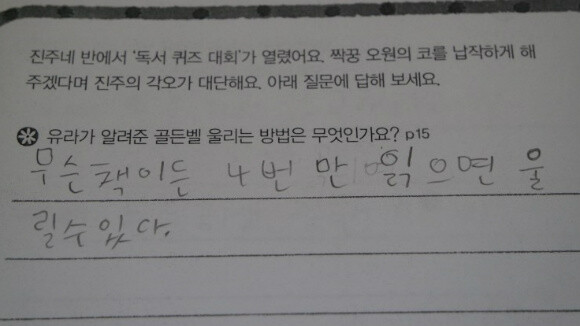 진주네 반에서 '독서 퀴즈 대회'가 열렸어요. 짝꿍 오원의 코를 납작하게 해
주겠다며 진주의 각오가 대단해요. 아래 질문에 답해 보세요.
유라가 알려준 골든벨 울리는 방법은 무엇인가요? p15
무슨책이든 4번만 읽으면 울
릴수있다.